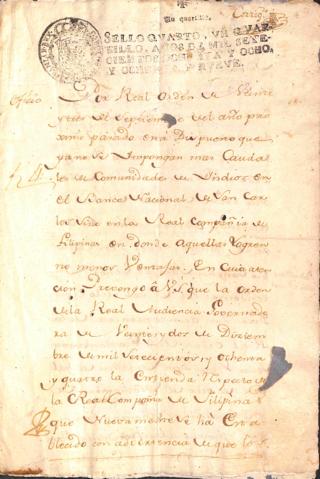 Un quartillo.
SELLO QUARTO, VN QVAR-
TILLO, AÑOS DE MIL SETE-
CIENTOS OCHENTA Y OCHO,
Y OCHENTA Y NUEVE.
Oficio
Por Real Orden de veinte
y tres de Septiembre del año pro
ximo pasado está Dispuesto que
ya no se Impongan mas Cauda
les de Comunidades de Yndios en
el Banco Nacional de San Car
los sino en la Real Compañia de
Filipinas en donde aquellas logren
no menos Ventajas. En Cuia aten
cion Prevengo à VS. que la orden
de la Real Audiencia Governado
ra de Veinte y dos de Diziem
bre de mil setecientos y ochenta
y quatro la entienda respecto de
la Real Compañia de Filipinas
que Nuevamente se há Esta
blecido con advertencia de que los